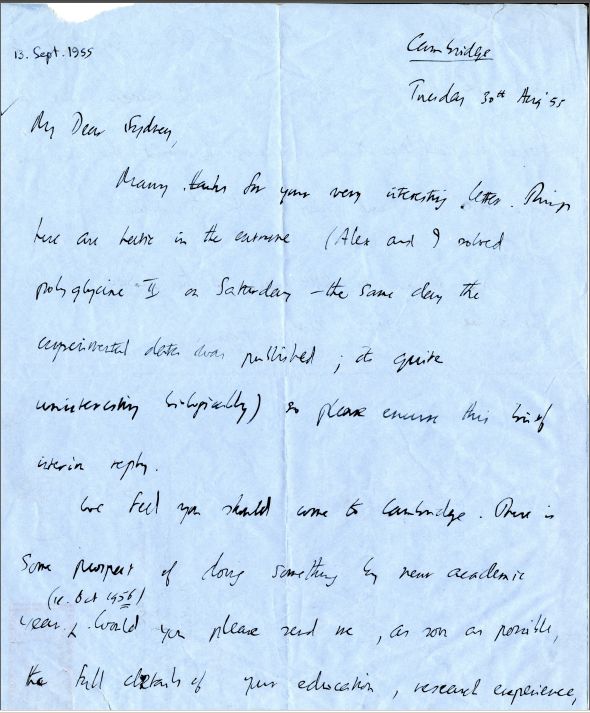 13. Sept. 1955
Cambridge
Tuesday 30th Aug '55
My Dear Sydney,
Many thanks for your very interesting letter. Things
here are hectic in the extreme (Alex and I solved
polyglycine II on Saturday — the same day the
experimental data was published; its quite
uninteresting biologically) so please excuse this brief
interim reply.
We feel you should come to Cambridge. There is
some prospect of doing something by next academic
(ie. Oct 1956)
year. Would you please send me, as soon as possible,
the full details of your education, research experience,